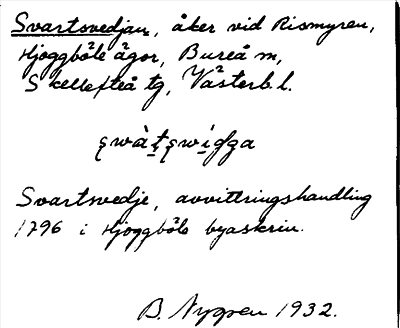 Svartsvedjan, åker vid Rismyren,
Hjoggböle ägor, Bureå sn,
Skellefteå tg, Västerb. l.
Svartsvedje, avvittringshandling
1796 i Hjoggböle byaskrin.
B. Nygren 1932.